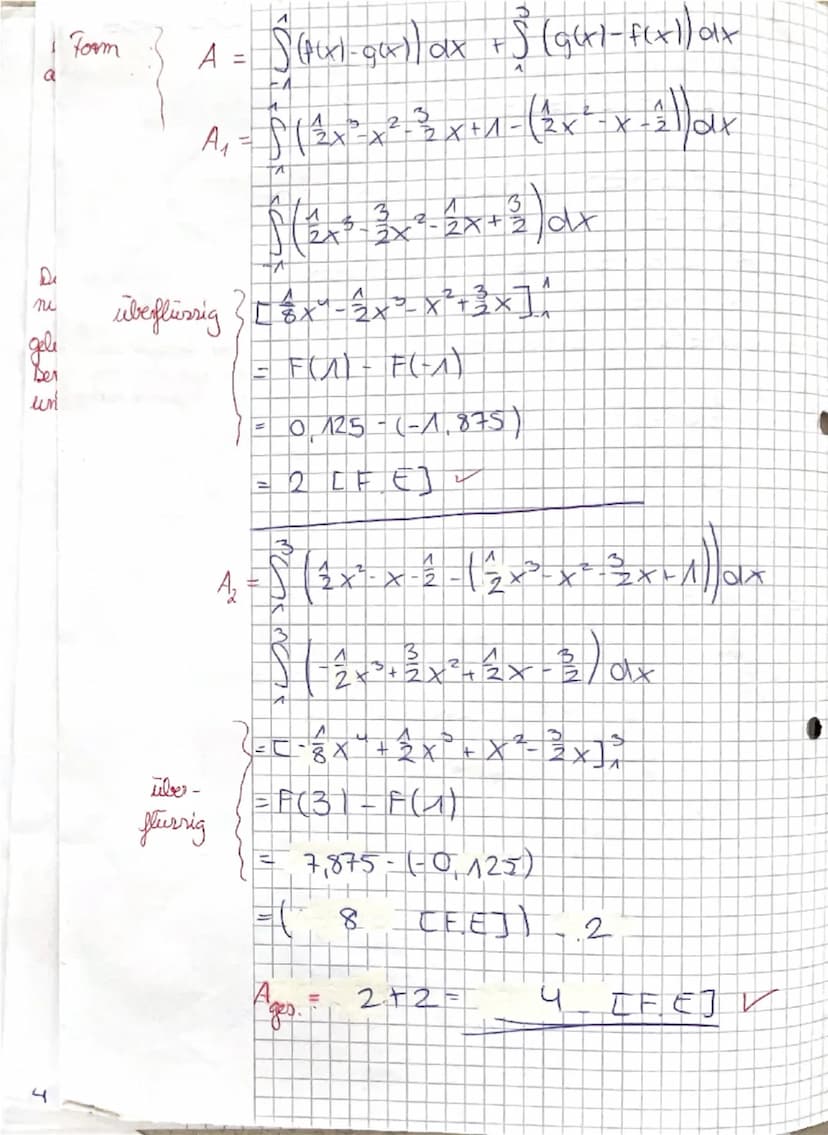 Form
A = ∫₋₁¹ (f(x)-g(x)) dx + ∫₁³ (g(x)-f(x)) dx
A₁ = ∫₋₁¹ (1/2x³-x²-3/2x+1-(1/2x²-x-1/2)) dx
∫₋₁¹ (1/2x³-3/2x²-1/2x+3/2) dx
überflüssig
[1/8x⁴-1/2x³-x²+3/2x]₋₁¹
= F(1) - F(-1)
= 0,125-(-1,875)
= 2 [F.E] ✓
A₂ = ∫₁³ (1/2x²-x-1/2-(1/2x³-x²-3/2x+1)) dx
∫₁³ (-1/2x³+3/2x²+1/2x-3/2) dx
=[-1/8x⁴+1/2x³+x²-3/2x]₁³
über-
flüssig
=F(3)-F(1)
= 7,875-(-0,125)
=( 8 [F.E]) 2
A ges. = 2+2= 4 [F.E] ✓
4